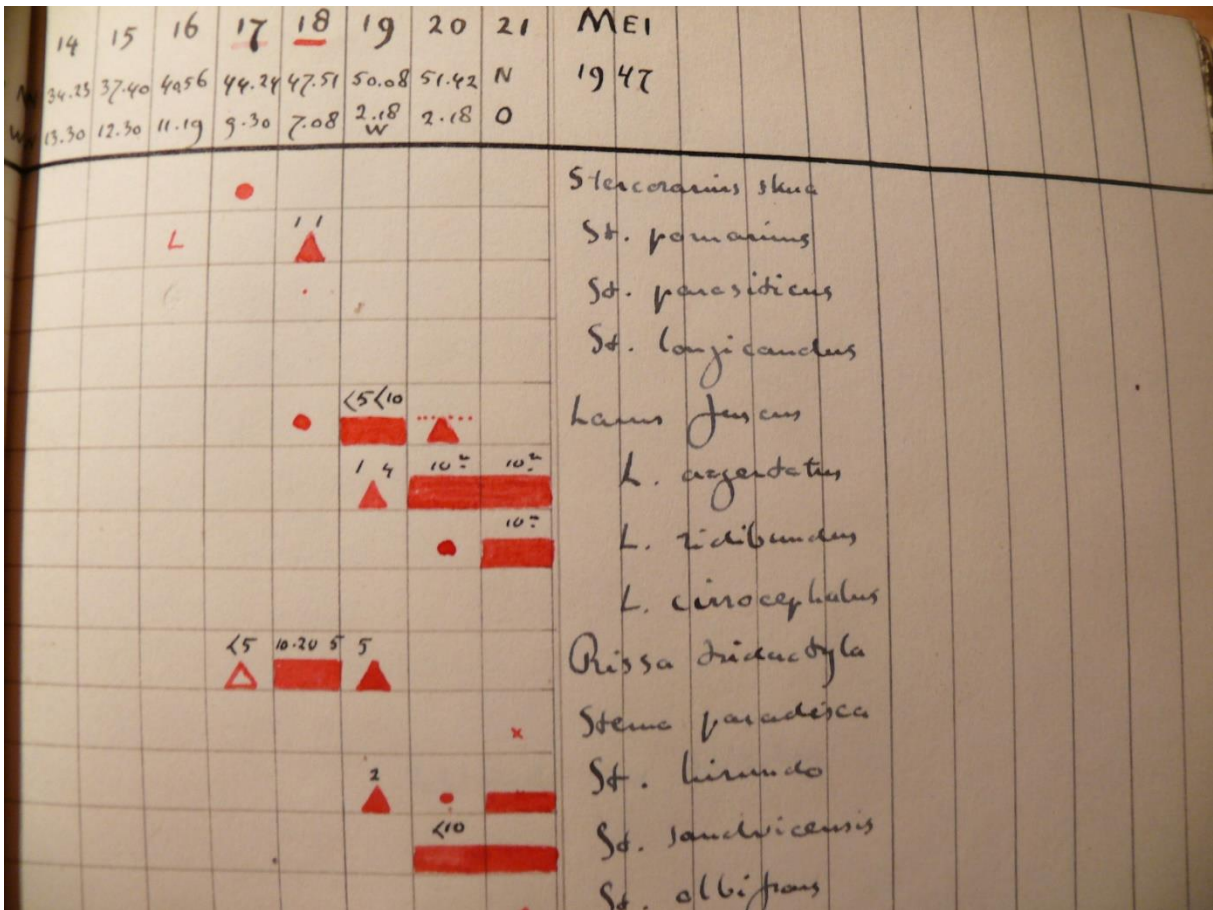 14 15 16 17 18 19 20 21 MEI
34.23 37.40 40.56 44.24 47.51 50.08 51.42 N 1947
13.30 12.30 11.19 9.30 7.08 2.18 2.18 O
W
Stercorarius skua
1 1
L St. pomarinus
St. parasiticus
St. longicaudus
<5<10
Larus fuscus
1 4 10
L. argentatus
10
L. ridibundus
L. cirrocephalus
<5 10.20 5 5
Rissa tridactyla
Sterna paradisea
x
2
St. hirundo
<10
St. sandvicensis
St. albifrons